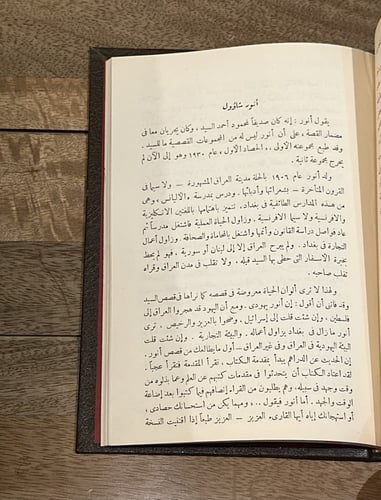 أنور شاؤول
يقول أنور : إنه كان صديقاً لمحمود أحمد السيد ، وكان يجريان معاً في
مضمار القصة ، على أن أنور ليس له من المجموعات القصصية ما للسيد .
وقد طبع مجموعته الاولى ، « الحصاد الاول » ، عام ١٩٣٠ وهو إلى الآن لم
يخرج مجموعة ثانية .
ولد أنور عام ١٩٠٦ بالحلة مدينة العراق المشهورة – ولا سيما في
القرون المتأخرة – بشعرائها وأدبائها . ودرس بمدرسة « الاليانس » وهى
من هذه المدارس الطائفية في بغداد ، تتميز باهتمامها باللغتين الانكليزية
والافرنسية ولا سيما الافرنسية . وزاول الحياة العملية فاشتغل مدرساً ثم
عاد فواصل دراسة القانون وأتمها واشتغل بالمحاماة والصحافة . وزاول أعمال
التجارة في بغداد . ولم يبرح العراق إلا إلى لبنان أو سورية . فهو لم يحظ
بخبرة الاسفار التى حظى بها السيد قبله . ولا تقلب في مدن العراق وقراه
تقلب صاحبه .
ولهذا لا ترى ألوان الحياة معروضة في قصصه كما تراها في قصص السيد
وقد فاتنى أن أقول : إن أنور يهودى . ومع أن اليهود قد هجروا العراق إلى
فلسطين ، وإن شئت قلت إلى إسرائيل ، وضحوا بالعزيز والرخيص ، ترى
أنور ما زال في بغداد يزاول أعماله . والبيئة التجارية . وإن شئت قلت
البيئة اليهودية في العراق وفي غير العراق – أول ما يطالعك من قصص أنور .
إن الحديث عن الدراهم يبدأ بمقدمة الكتاب . تقرأ المقدمة فتقرأ عجباً .
لقد اعتاد الكتاب أن يتحدثوا في مقدمات كتبهم عن العلم وعما بذلوه من
وقت وجهد في سبيله ، وهم يطلبون من القراء إنصافهم فيما كتبوا بعد إضاعة
الوقت والجهد . أما أنور فيقول .. « ومهما يكن من استحسانك حصادى ،
أو استهجانك إياه أيها القارىء العزيز – العزيز طبعاً إذا اقتنيت النسخة